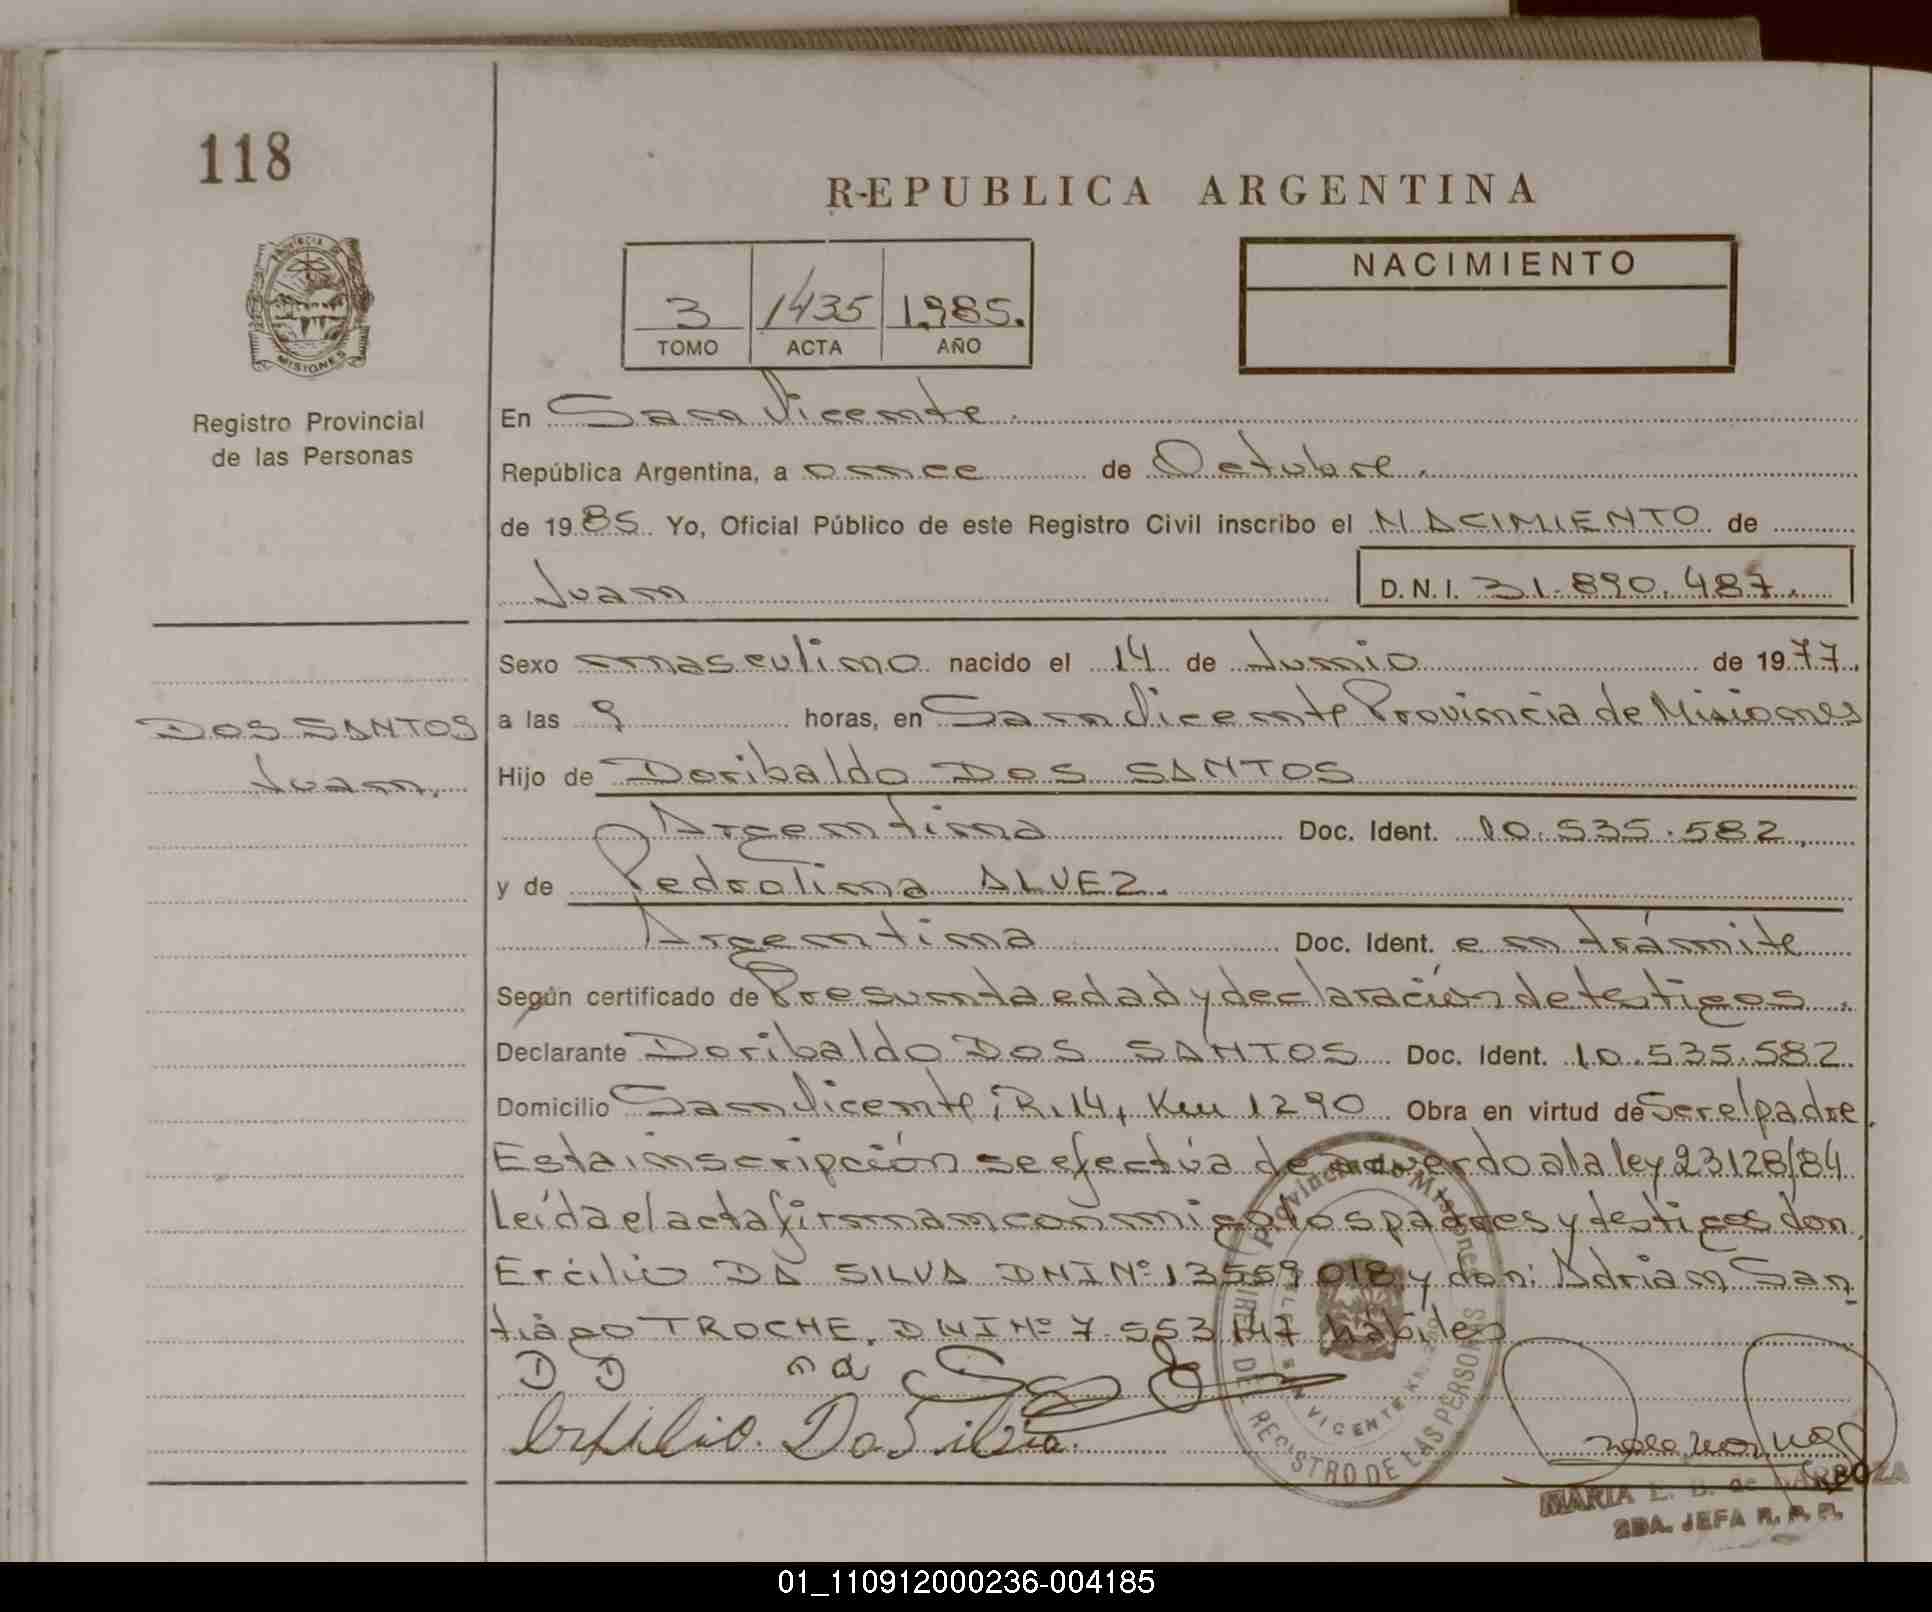 118
REPUBLICA ARGENTINA
PROVINCIA DE
MISIONES
Registro Provincial
de las Personas
3 1435 1.985.
TOMO ACTA AÑO
NACIMIENTO
En San Vicente.
República Argentina, a once de Octubre.
de 1985. Yo, Oficial Público de este Registro Civil inscribo el NACIMIENTO de
Juan D.N.I. 31.890.487.
DOS SANTOS
Juan.
Sexo masculino nacido el 14 de Junio de 1977.
a las 9 horas, en San Vicente Provincia de Misiones
Hijo de Doribaldo DOS SANTOS
Argentina Doc. Ident. 10.535.582
y de Pedrolina ALVEZ.
Argentina Doc. Ident. en trámite
Según certificado de Presunta edad y declaración de testigos.
Declarante Doribaldo DOS SANTOS Doc. Ident. 10.535.582
Domicilio San Vicente, R.14, Km 1290 Obra en virtud de Ser el padre.
Esta inscripción se efectúa de acuerdo a la ley 23128/84
leída el acta firman conmigo los padres y testigos don
Ercilio DA SILVA DNI Nº 13559018 y don: Adrian San-
tiago TROCHE. DNI Nº 7.553.147 hábiles
D D na
Da Silva.
Provincia de Misiones
REGISTRO DE LAS PERSONAS
SAN VICENTE
MARIA E. B. de BARBOZA
2DA. JEFA R. P. P.
01_110912000236-004185